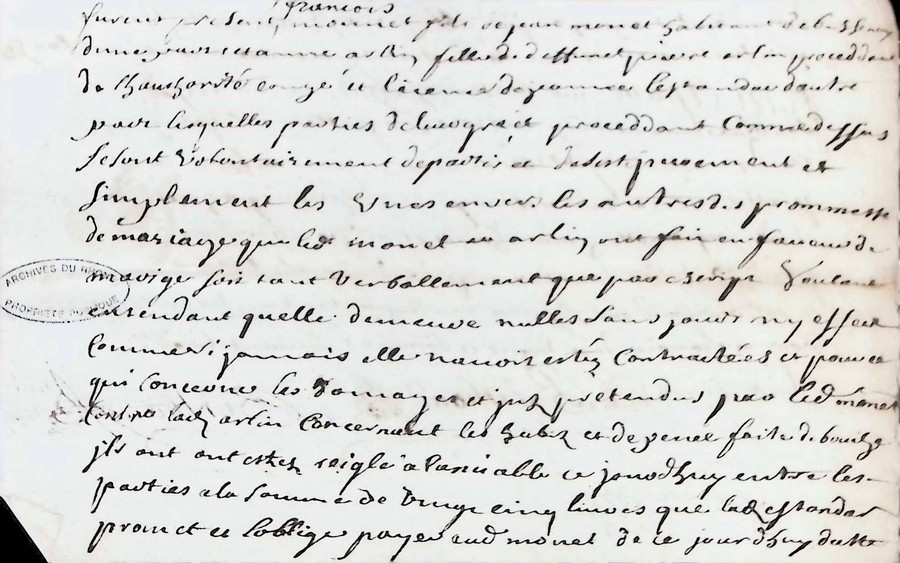 françois
furent present, monnet fils de jean monet habitant de bussieny
dune part et anne arlin fille de deffunct pierre arlin proceddant
de l'hauthorité congé et licence de jeanne lestandar dautre
part lesquelles parties de leur gré et proceddant comme dessus
se sont volontairement departis et desist purement et
simplement les unes envers les autres des promesse
de mariage que led monet et arlin ont fait en faveur de
mariage soit tant verballement que par escript voulant
entendant quelle demeure nulles sans jouir ny effect
comme si jamais elle n'avoit estéz contractéés et pour ce
qui concerne les domages et jnth pretendus par led monet
contre lad arlin concernant les habitz et depence faite de bouche
jls ont ont estez reiglé a l'amiable ce jourdhuy entre les
parties a la somme de vingt cinq livres que lad estandar
promet et s'obblige payer aud monet de ce jourdhuy datte
ARCHIVES DU RHÔNE
PROPRIÉTÉ PUBLIQUE